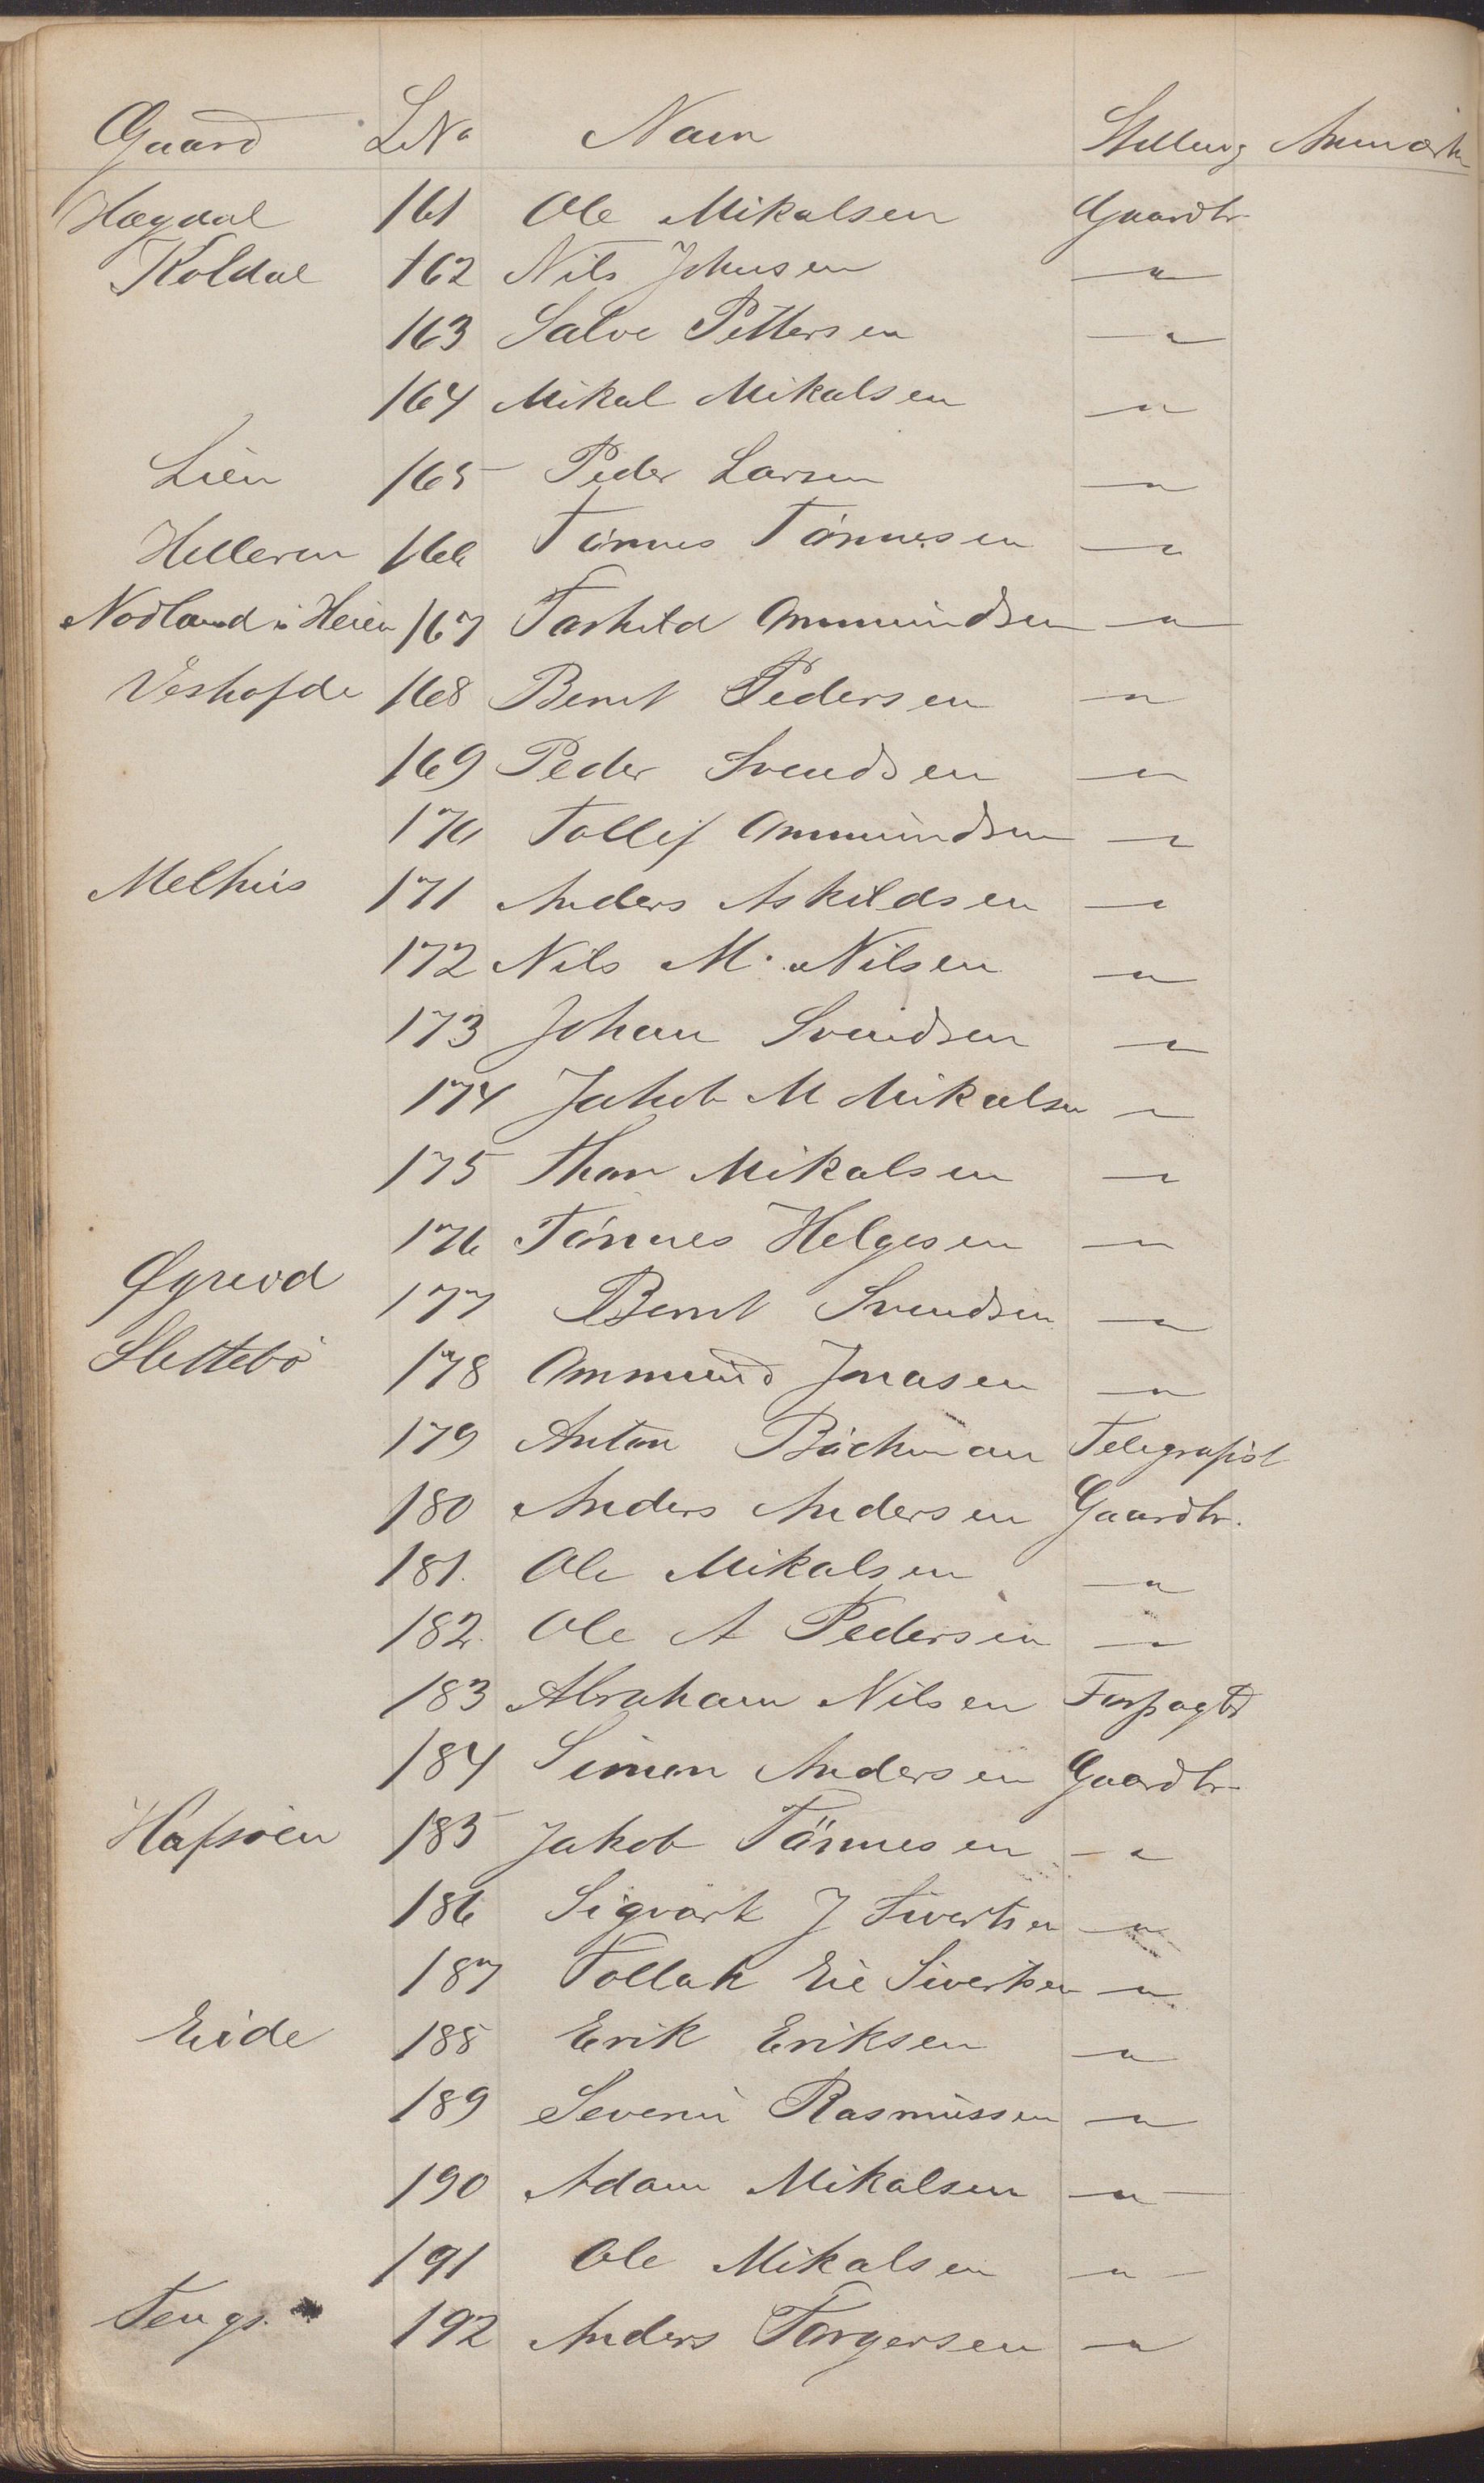 Gaard LNo Navn Stilling Anmærk
Hægdal 161 Ole Mikalsen Gaardbr
Koldal 162 Nils Johnsen — " —
163 Salve Pettersen — " —
164 Mikal Mikalsen — " —
Lien 165 Peder Larsen — " —
Helleren 166 Tönnes Tönnesen — " —
Nodland i Heien 167 Tarkild Ommundsen — " —
Veshofde 168 Bernt Pedersen — " —
169 Peder Svendsen — " —
170 Tollif Ommundsen — " —
Melhus 171 Anders Askildsen — " —
172 Nils M. Nilsen — " —
173 Johan Svendsen — " —
174 Jakob M Mikalsen — " —
175 Thor Mikalsen — " —
176 Tönnes Helgesen — " —
Øgreid 177 Bernt Svendsen — " —
Slettebö 178 Ommund Jonasen — " —
179 Anton Bächman Telegrafist
180 Anders Andersen Gaardbr.
181. Ole Mikalsen — " —
182. Ole A Pedersen — " —
183 Abraham Nilsen Forpagter
184 Simon Andersen Gaardbr
Hafsöen 185 Jakob Tönnesen — " —
186 Sigvart J Sivertsen — " —
187 Tollak Eie Sivertsen — " —
Eide 188 Erik Eriksen — " —
189 Severin Rasmussen — " —
190 Adam Mikalsen — " —
191 Ole Mikalsen — " —
Tengs. 192 Anders Torgersen — " —